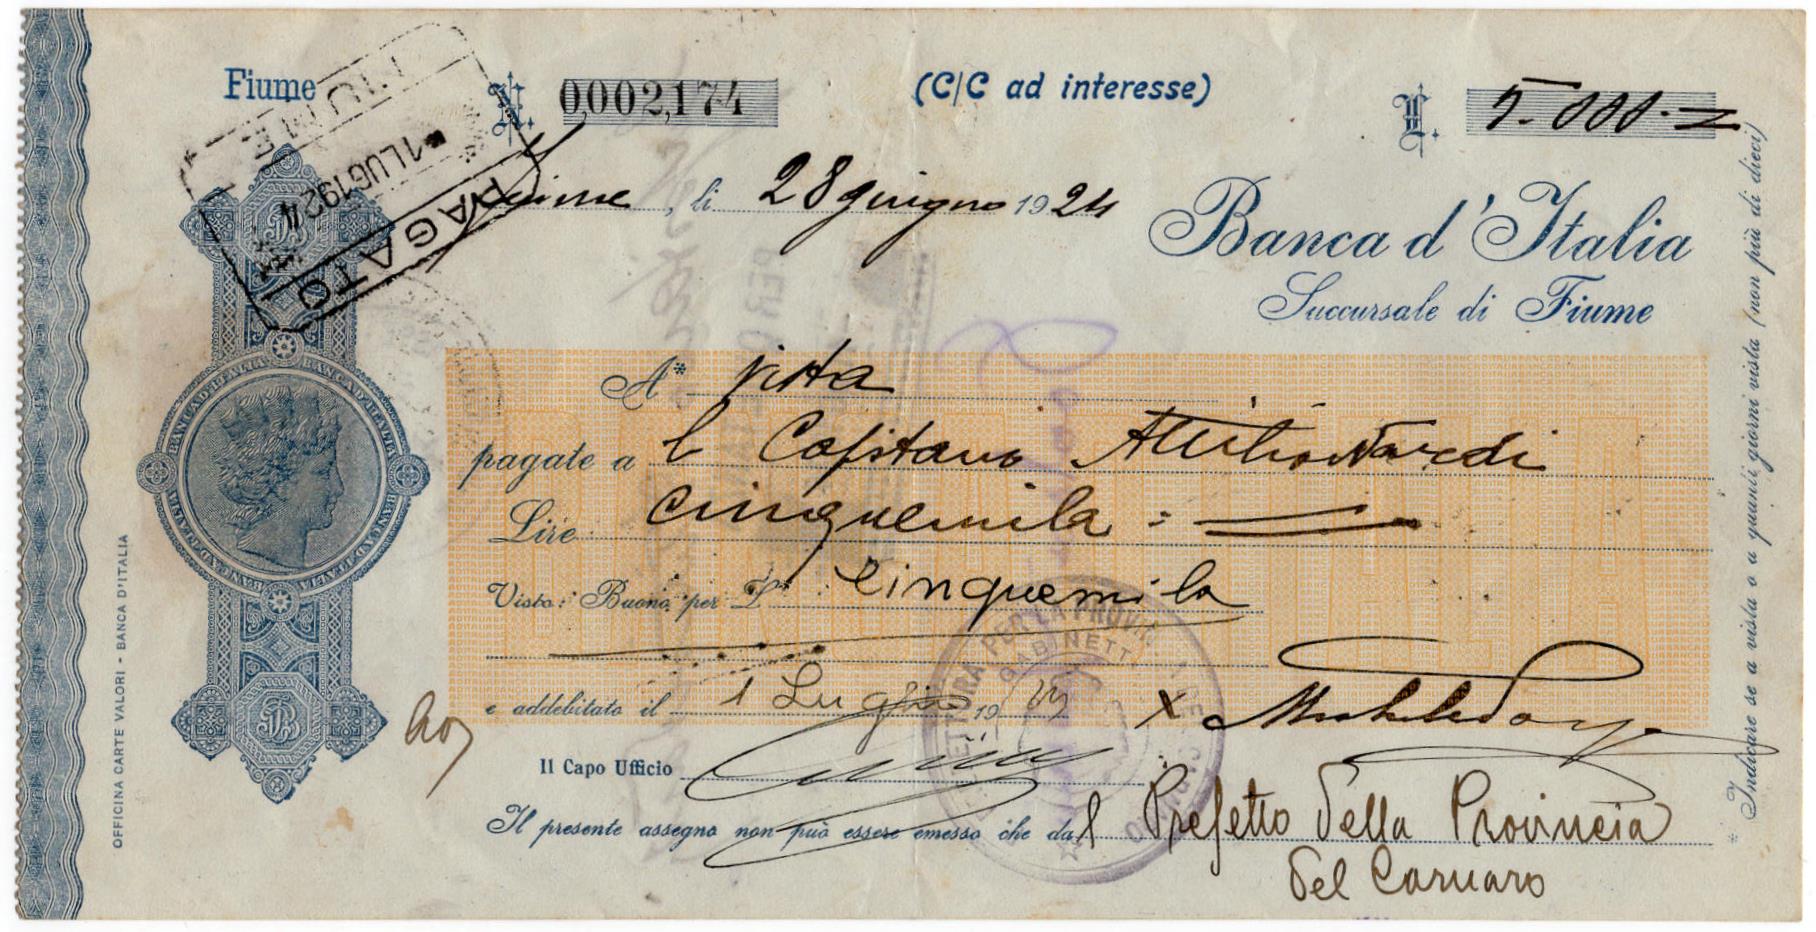 Fiume
N. 0,002,174
(C/C ad interesse)
L. 5.000.=
FIUME
-1 LUG 1924
PAGATO
Fiume, li 28 giugno 1924
Banca d'Italia
Succursale di Fiume
A* vista
pagate a l Capitano Attilio Nardi
Lire cinquemila =
Visto: Buono per L. cinquemila
e addebitato il 1 Luglio 19
Il Capo Ufficio
Il presente assegno non può essere emesso che dal Prefetto della Provincia
del Carnaro
* Indicare se a vista o a quanti giorni vista (non più di dieci)
OFFICINA CARTE VALORI - BANCA D'ITALIA
BANCA D'ITALIA BANCA D'ITALIA BANCA D'ITALIA BANCA D'ITALIA
PER LA PROV.
GABINETT